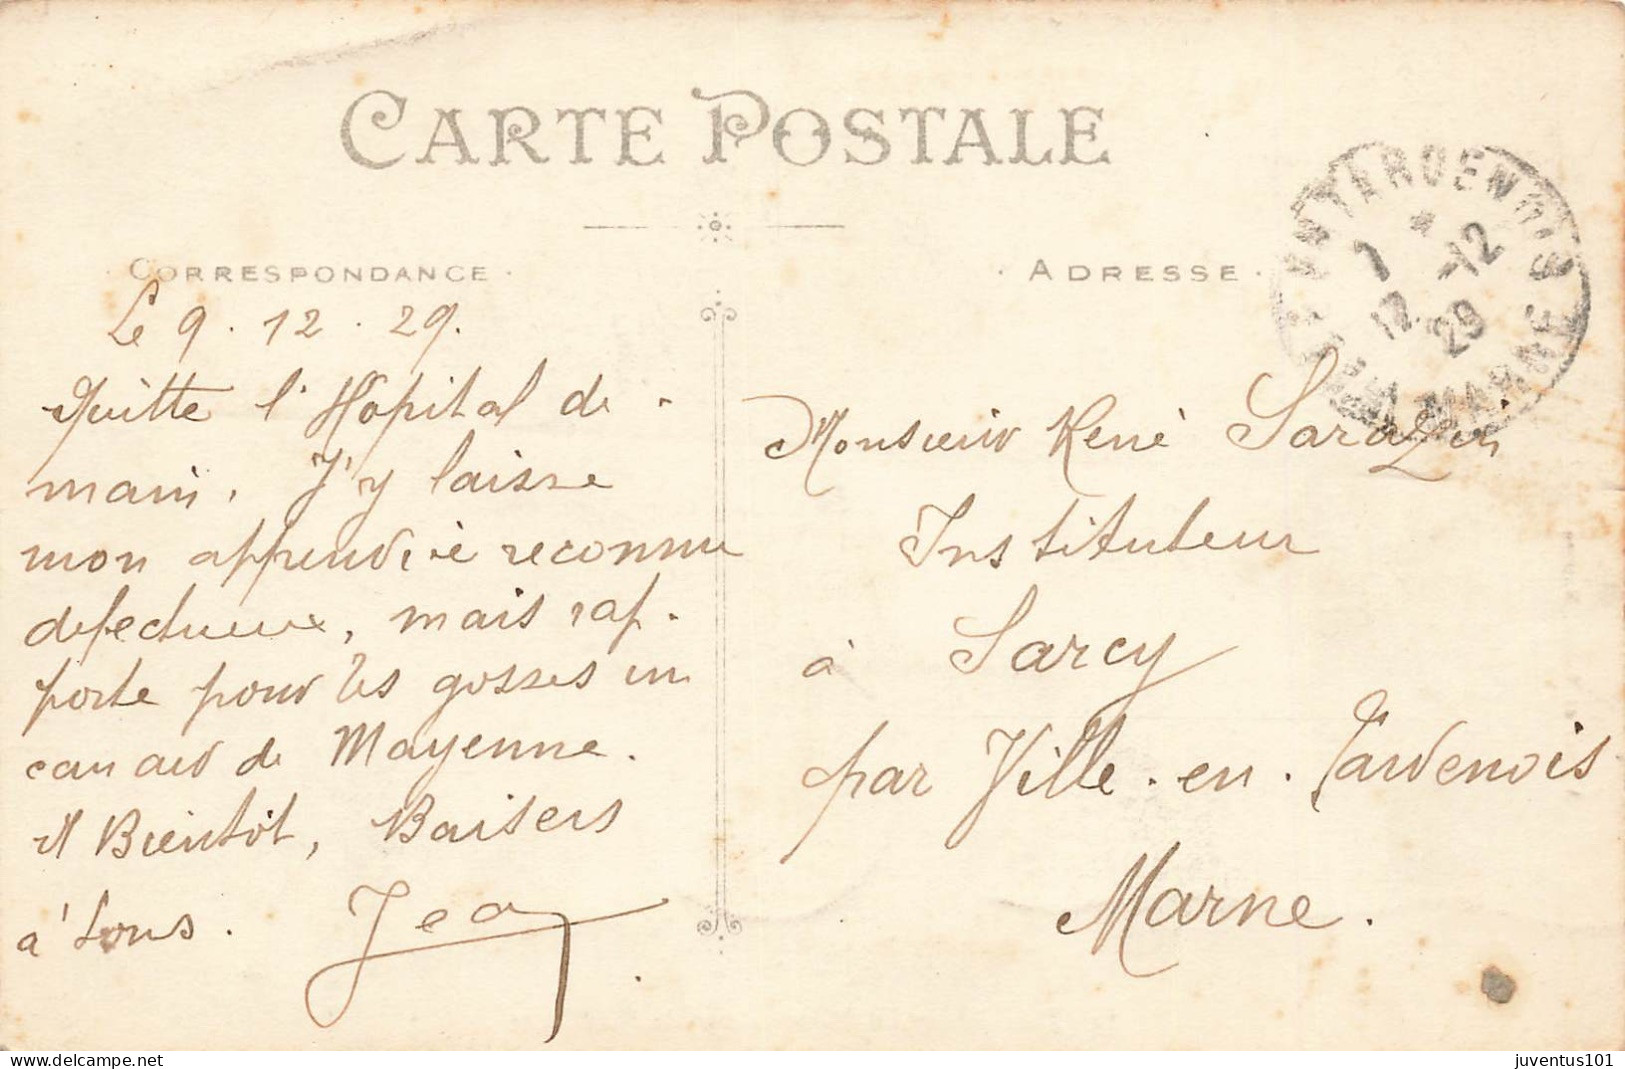 CARTE POSTALE
CORRESPONDANCE
ADRESSE
Le 9.12.29.
Quitte l'Hopital de-
main. J'y laisse
mon appendice reconnu
defectueuse, mais rap-
porte pour les gosses un
canard de Mayenne.
A Bientôt, Baisers
à tous. Jean
Monsieur René Sarazin
Instituteur
à Sarcy
par Ville-en-Tardenois
Marne.
7 * -12
12 29
MARNE
juventus101